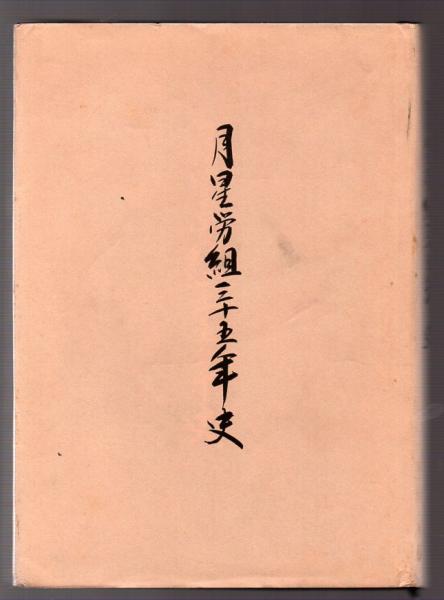 月星労組三十五年史